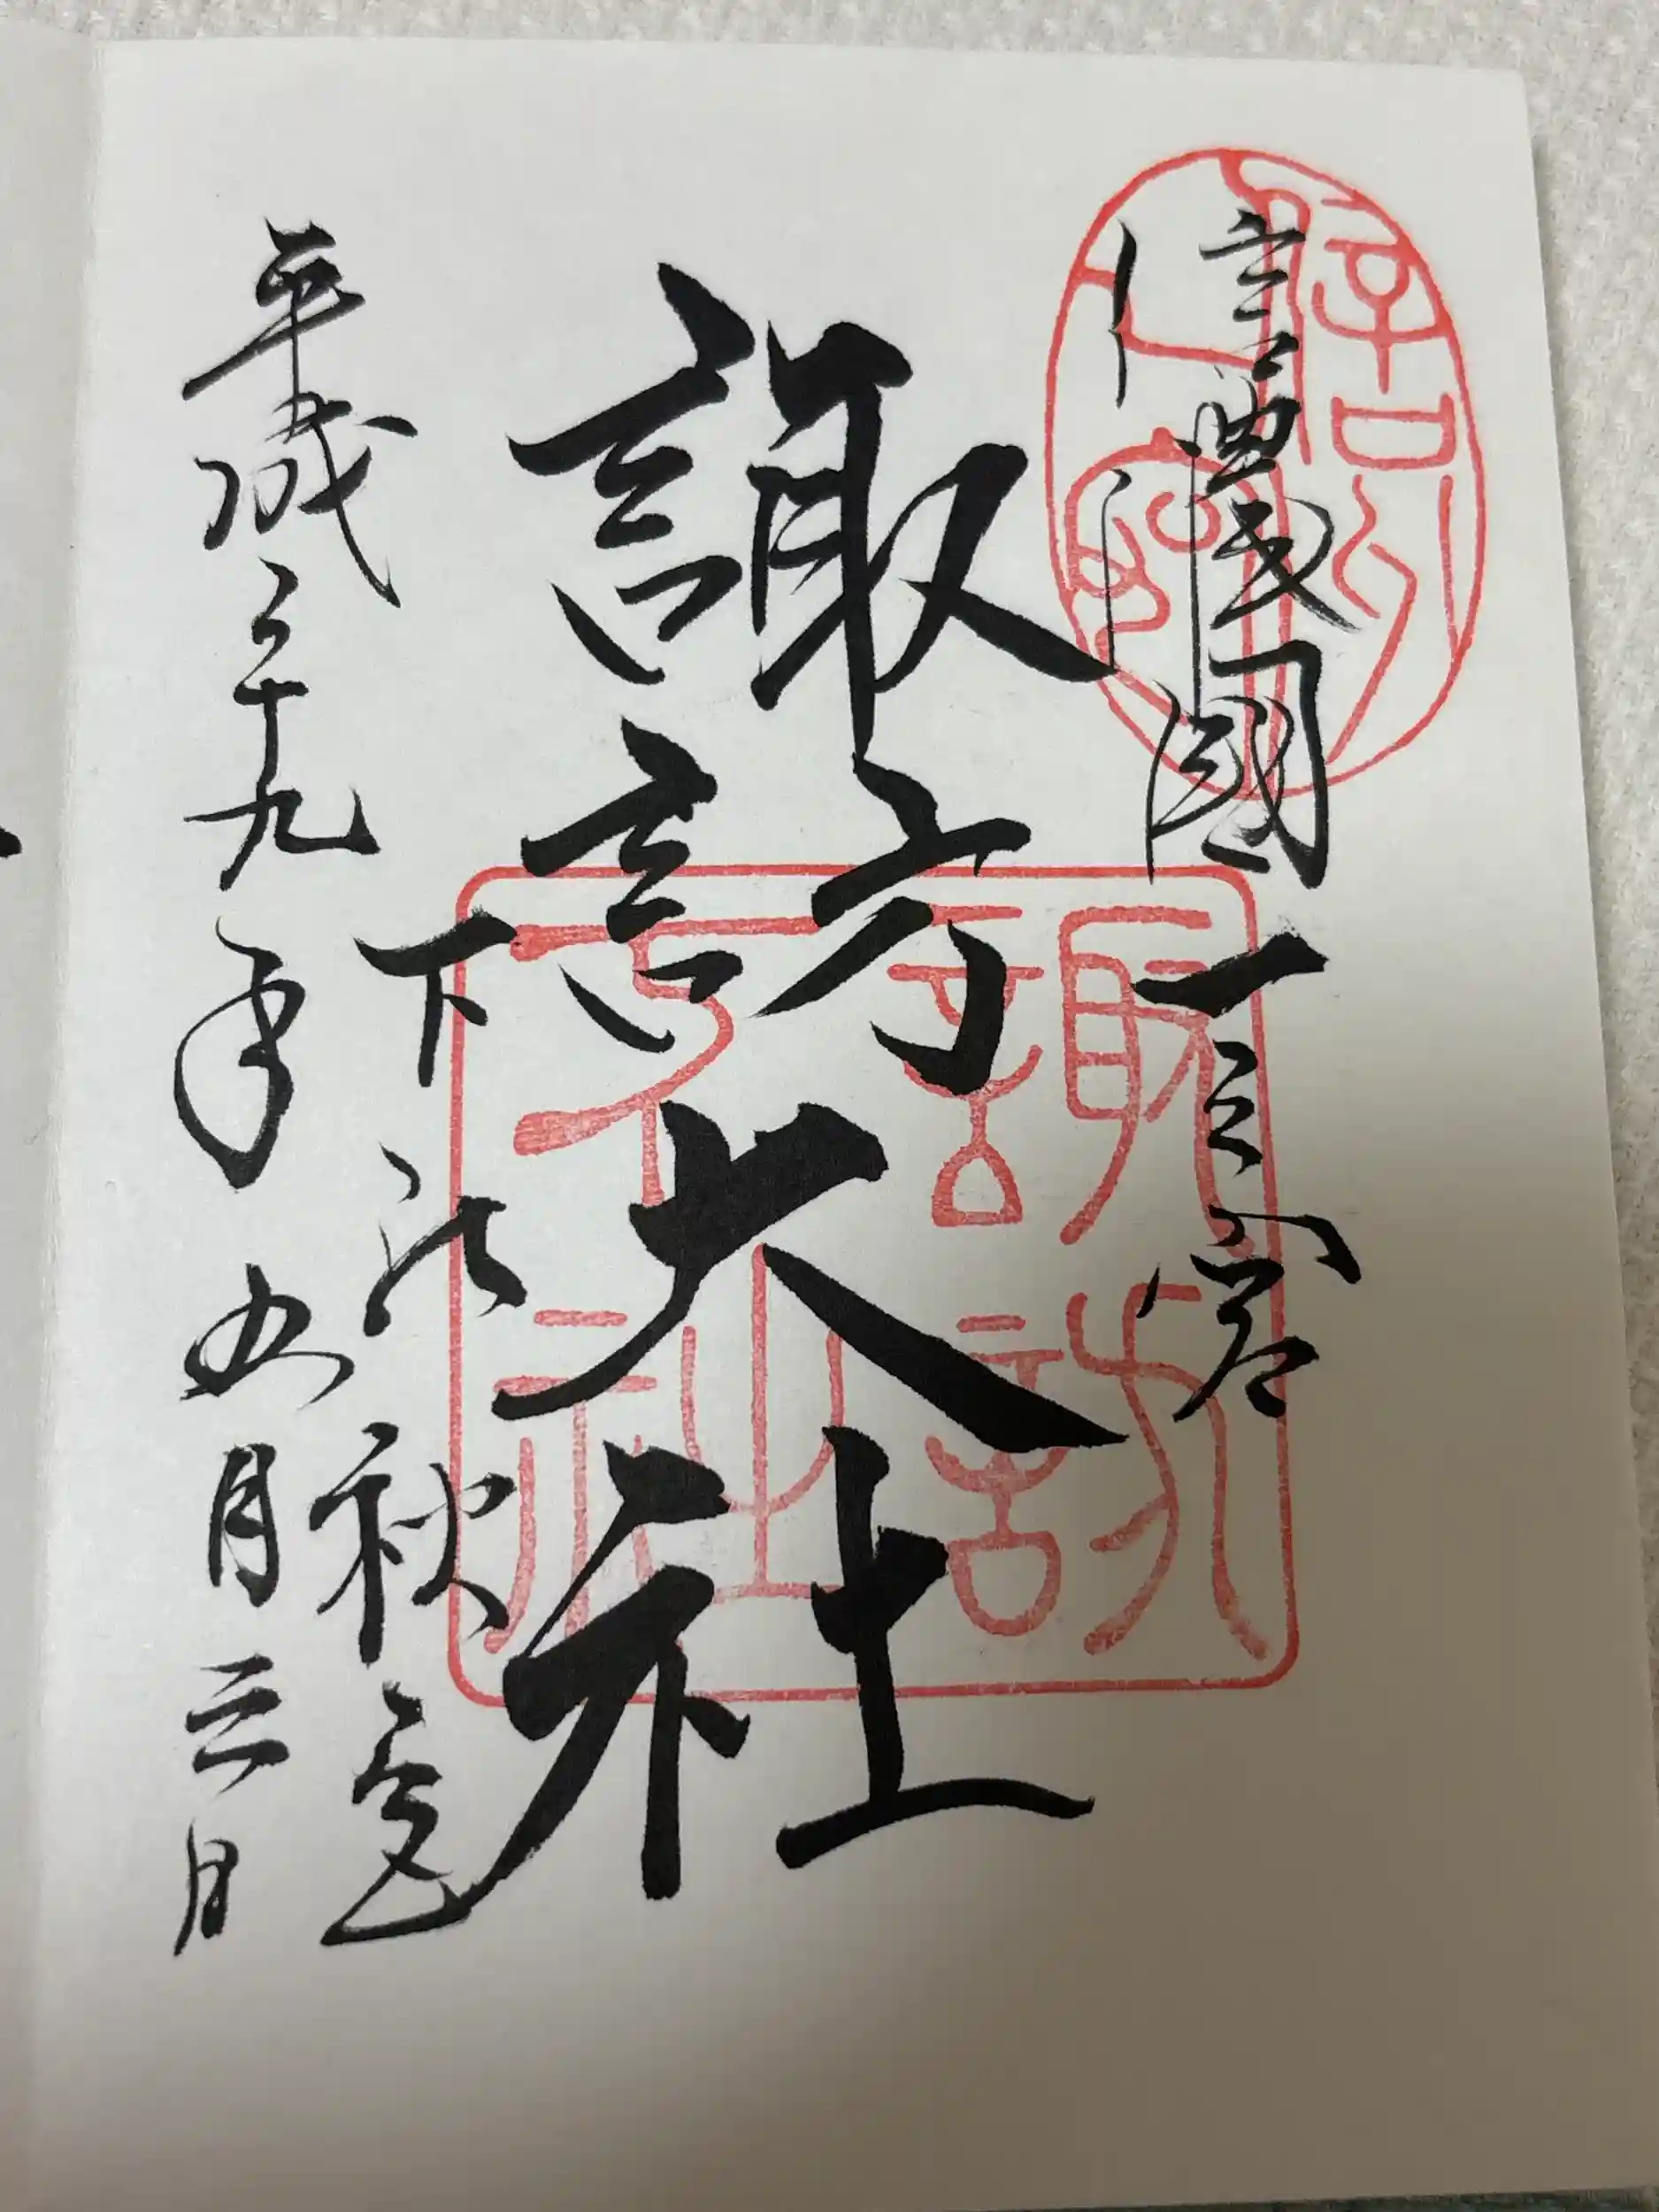 信濃國一之宮
諏訪大社
下社秋宮
平成二十九年五月三日
諏訪大社